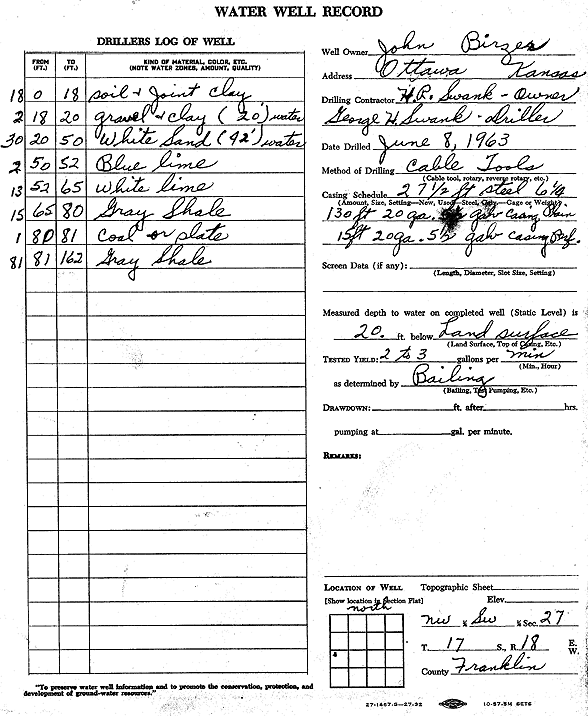 WATER WELL RECORD
DRILLERS LOG OF WELL
FROM (FT.) TO (FT.) KIND OF MATERIAL, COLOR, ETC. (NOTE WATER ZONES, AMOUNT, QUALITY)
18 0 18 soil & Joint clay
2 18 20 gravel & clay (20') water
30 20 50 White Sand (42') water
2 50 52 Blue lime
13 52 65 white lime
15 65 80 Gray Shale
1 80 81 Coal or plate
81 81 162 Gray Shale
"To preserve water well information and to promote the conservation, protection, and development of ground-water resources."
Well Owner John Birzer
Address Ottawa Kansas
Drilling Contractor H.R. Swank - Owner
George H Swank - Driller
Date Drilled June 8, 1963
Method of Drilling Cable Tools
(Cable tool, rotary, reverse rotary, etc.)
Casing Schedule 27 1/2 ft steel 6 1/4
(Amount, Size, Setting—New, Used—Steel, Galv.—Gage or Weight)
130 ft 20 ga. 5 1/2 galv Casing Plain
15 ft 20 ga. 5 1/2 galv casing Perf.
Screen Data (if any):
(Length, Diameter, Slot Size, Setting)
Measured depth to water on completed well (Static Level) is
20. ft. below Land surface
(Land Surface, Top of Casing, Etc.)
TESTED YIELD: 2 to 3 gallons per min
(Min., Hour)
as determined by Bailing
(Bailing, Test Pumping, Etc.)
DRAWDOWN: ft. after hrs.
pumping at gal. per minute.
REMARKS:
LOCATION OF WELL Topographic Sheet
[Show location in Section Plat] Elev.
north
nw ¼ Sw ¼ Sec. 27
T. 17 S., R. 18 E. W.
County Franklin
10-57-5M SETS